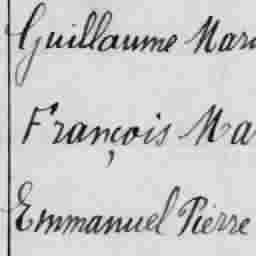 Guillaume Mar
François Ma
Emmanuel Pierre